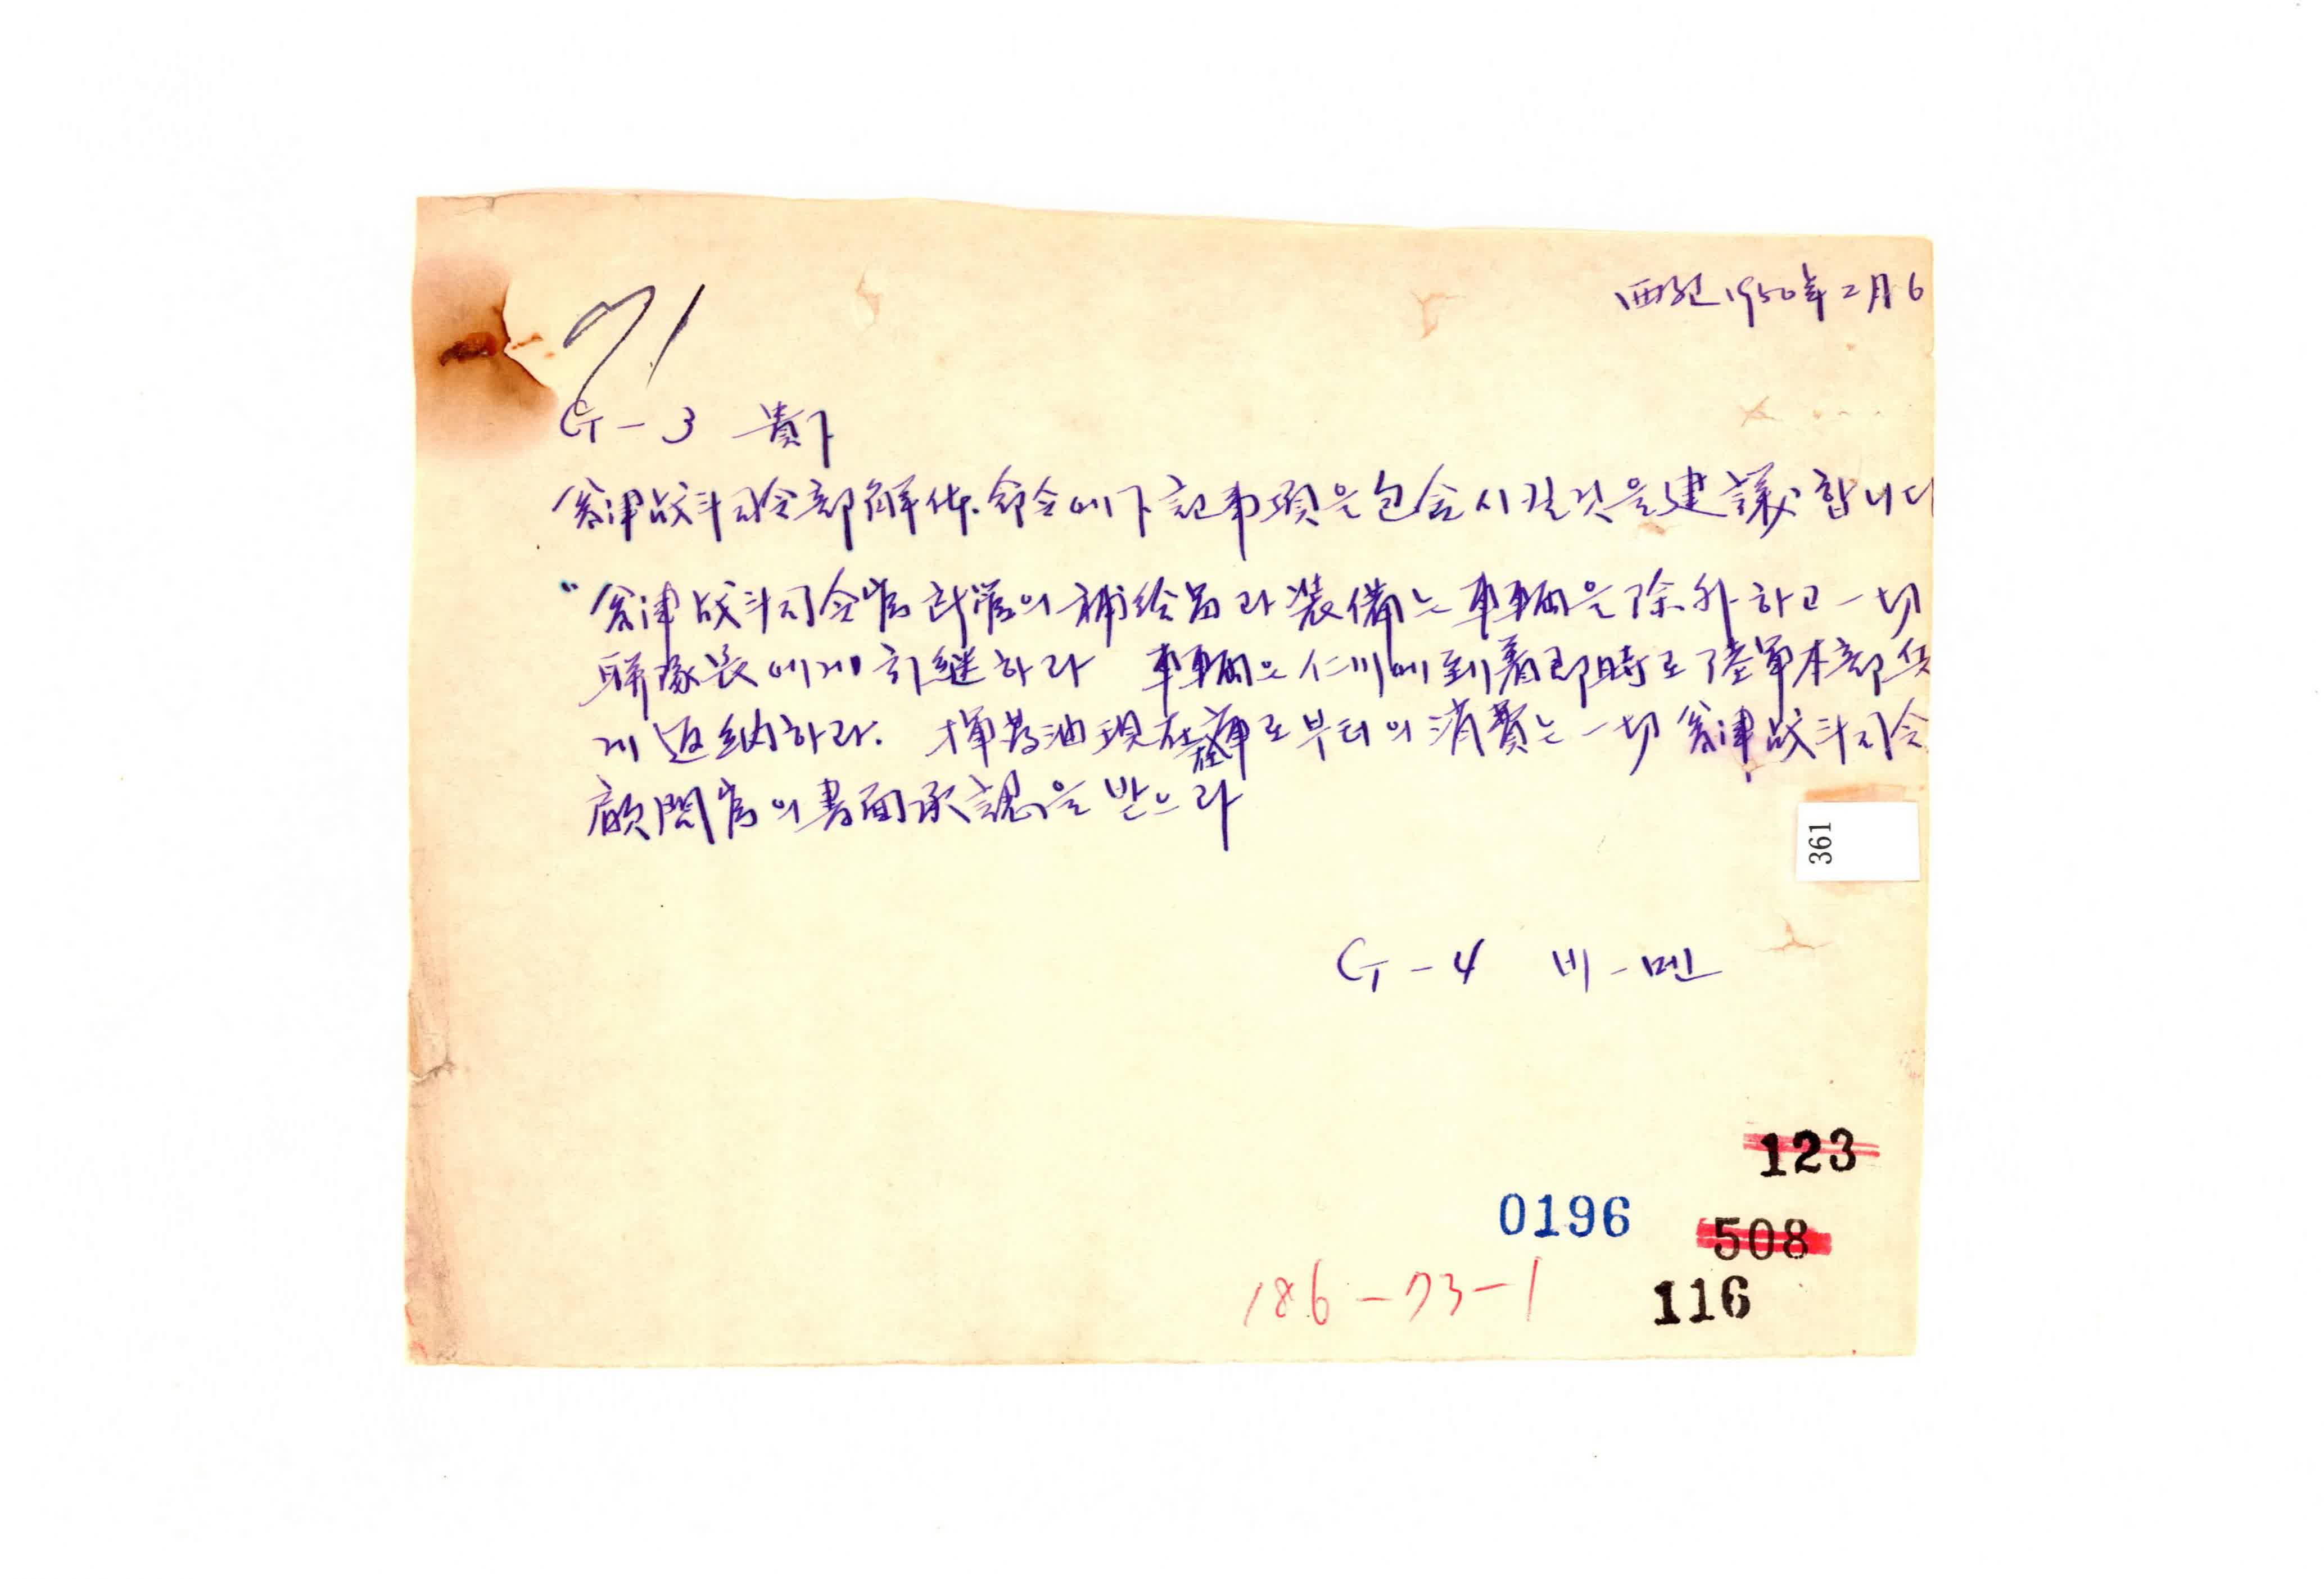 西紀1950年2月6
G-3 貴下
翁津战斗司令部解体命令에下記事項을包含시킬것을建議합니다
"翁津战斗司令官所管의補給品과装備는車輛을除外하고一切
聯隊长에게引継하라 車輛은仁川에到着即時로陸軍本部兵
게返納하라. 揮発油現在庫로부터의消費는一切翁津战斗司令
顧問官의書面承認을받으라
361
G-4 비-멘
123
0196
508
186-73-1
116